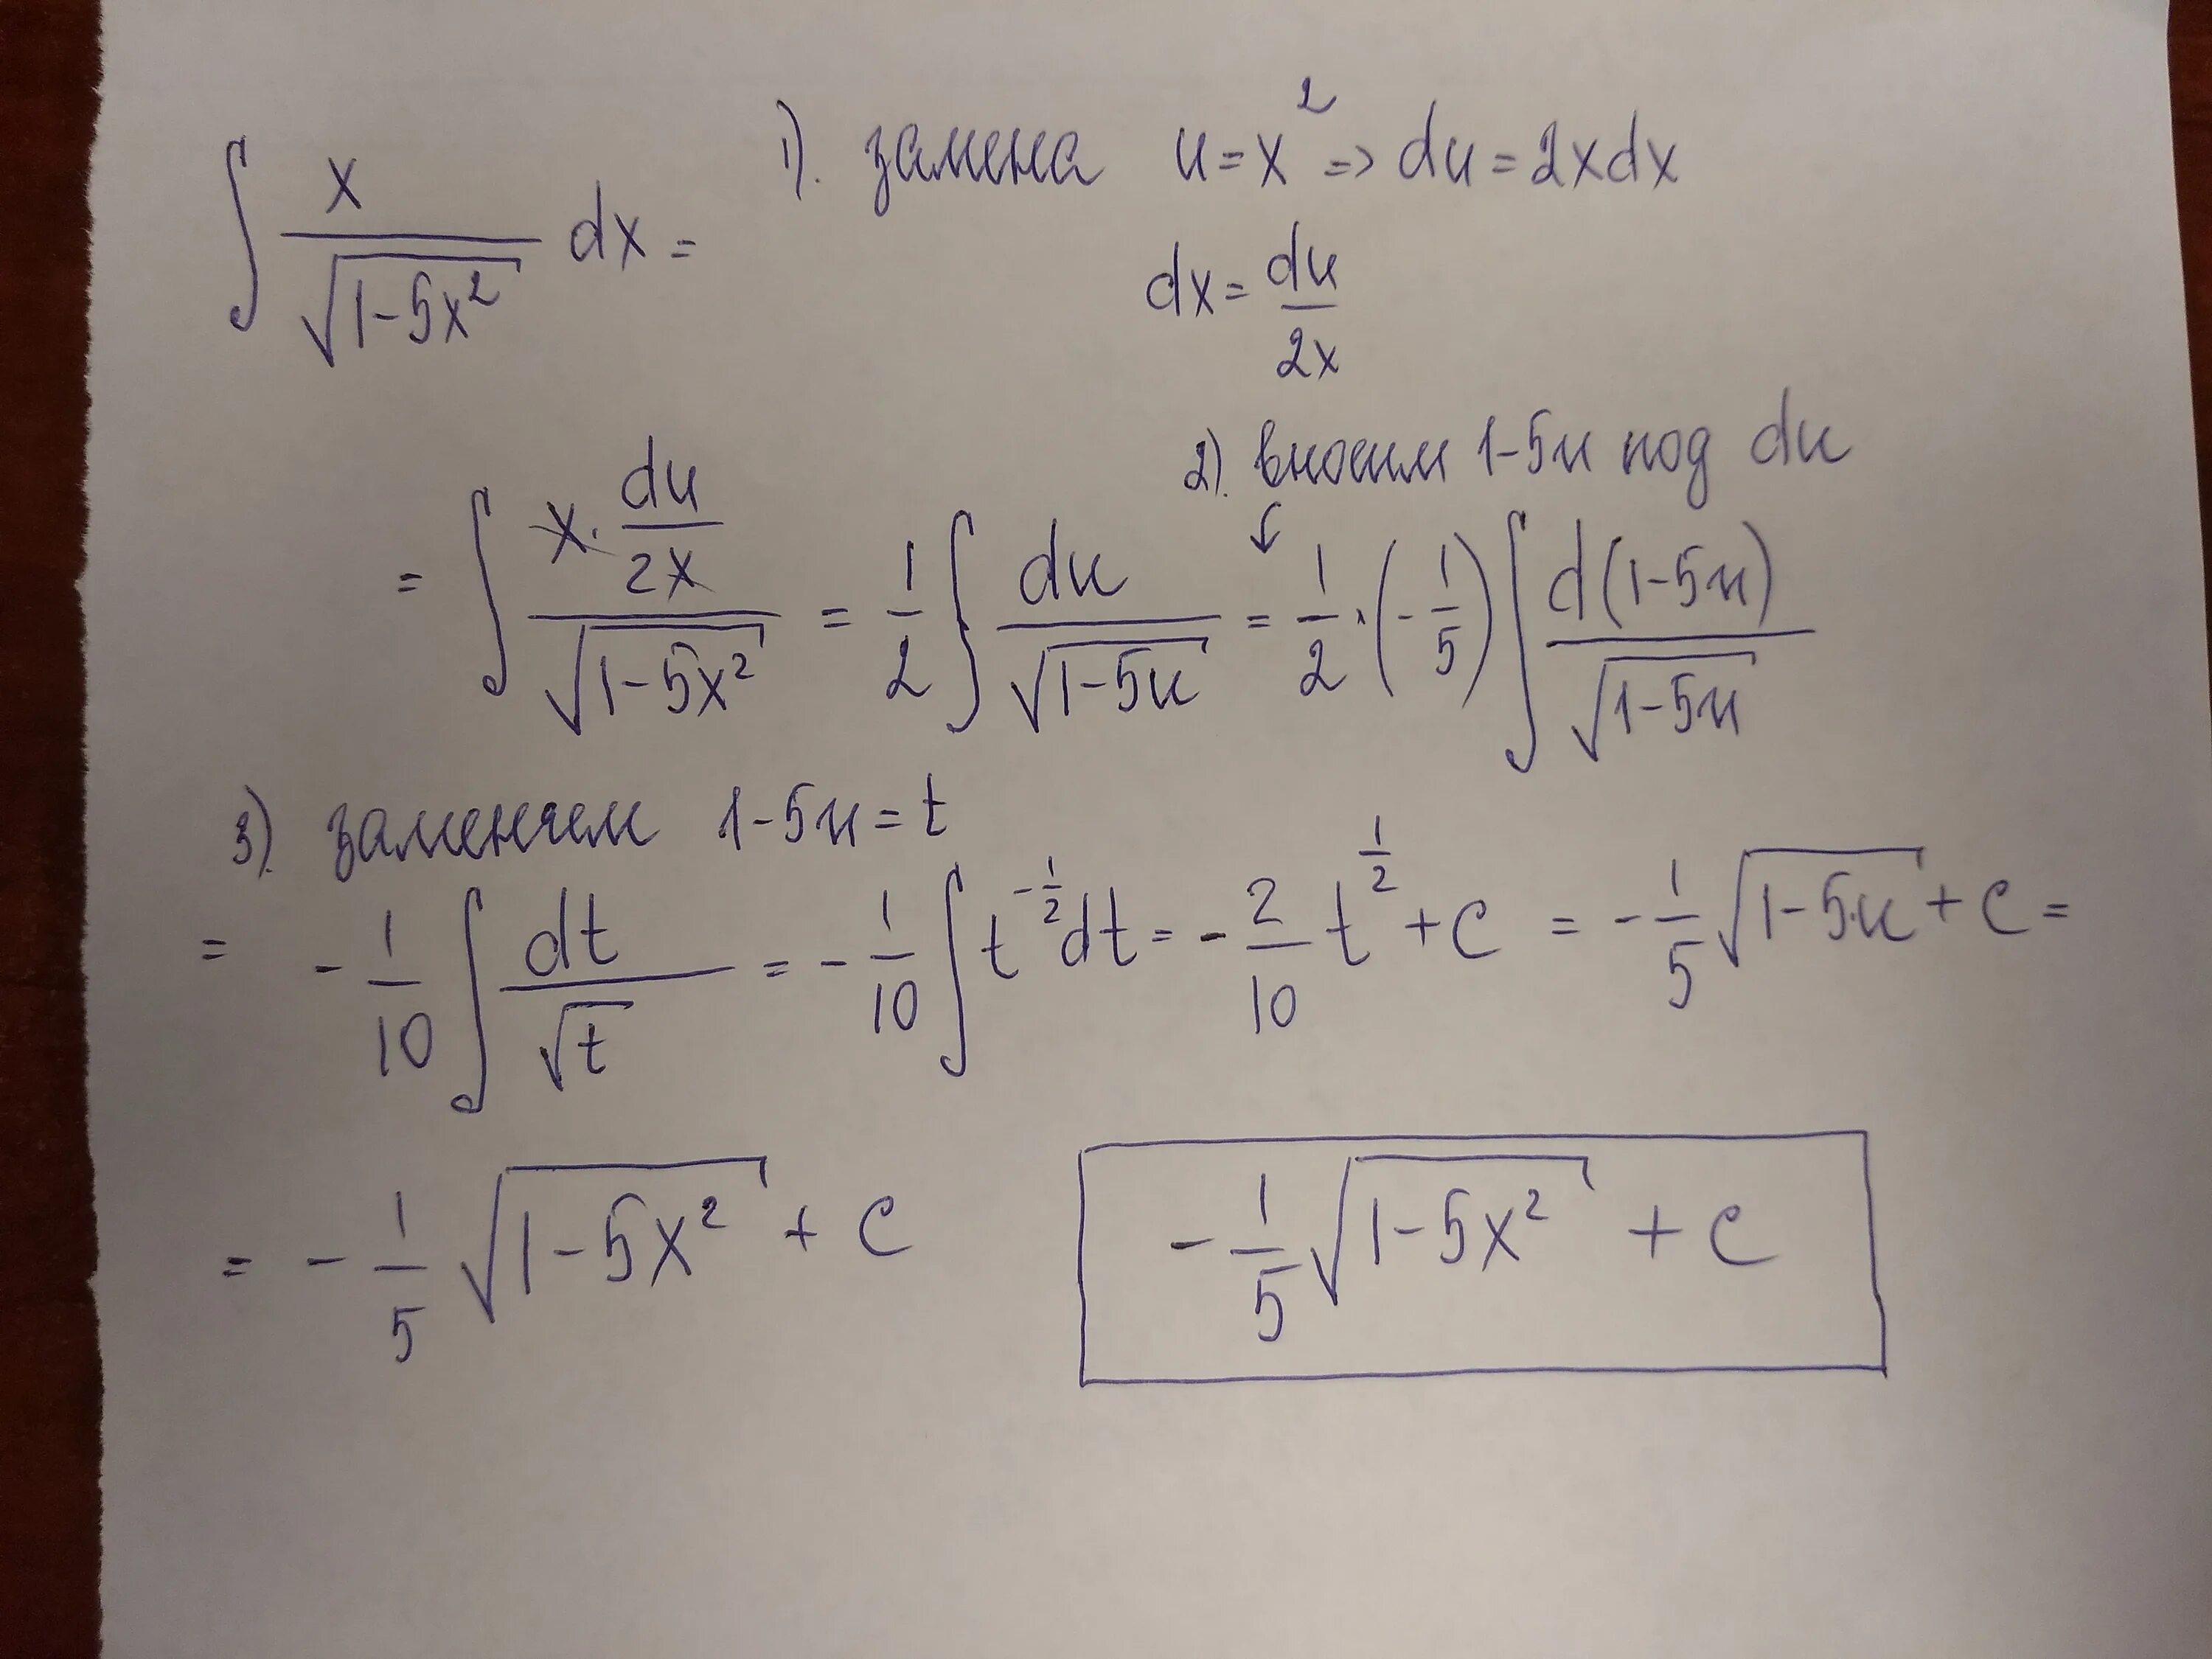 ∫ x/√(1-5x²) dx = 1). замена u = x² => du = 2xdx
dx = du/2x
2). вносим 1-5u под du
= ∫ (x · du/2x)/√(1-5x²) = 1/2 ∫ du/√(1-5u) = 1/2 · (-1/5) ∫ d(1-5u)/√(1-5u)
3). заменяем 1-5u = t
= -1/10 ∫ dt/√t = -1/10 ∫ t^(-1/2) dt = -2/10 t^(1/2) + c = -1/5 √(1-5u) + c =
= -1/5 √(1-5x²) + c -1/5 √(1-5x²) + c